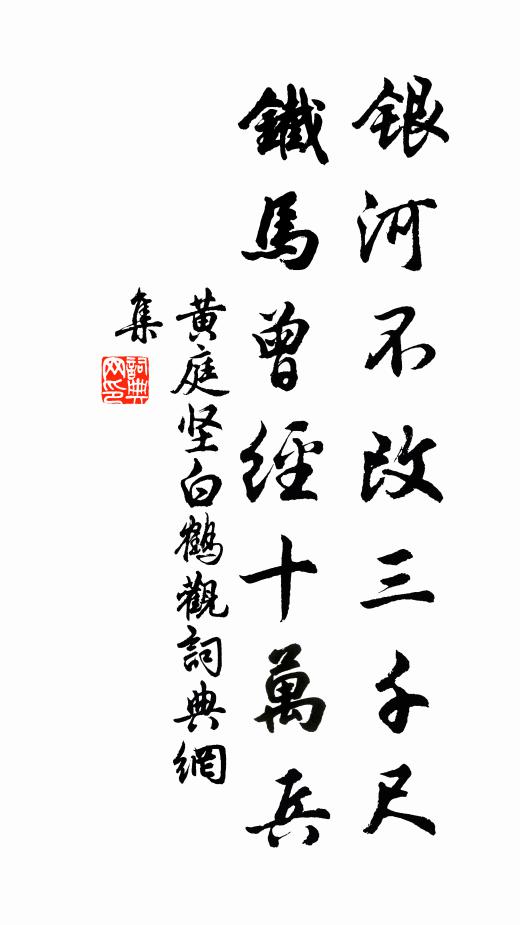 銀河不改三千尺
鐵馬曾經十萬兵
黄庭坚白鶴觀詞典網
集
詞典
网印